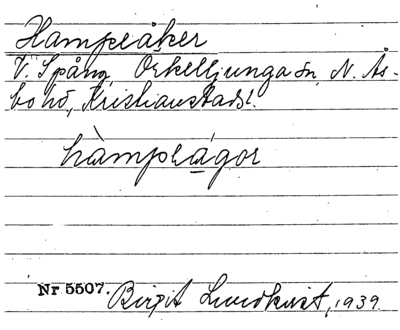 Hampeåker
V. Spång, Örkelljunga sn, N. Ås-
bo hd, Kristianstads l.
hàmpeágor
Nr 5507. Birgit Lundkvist, 1939